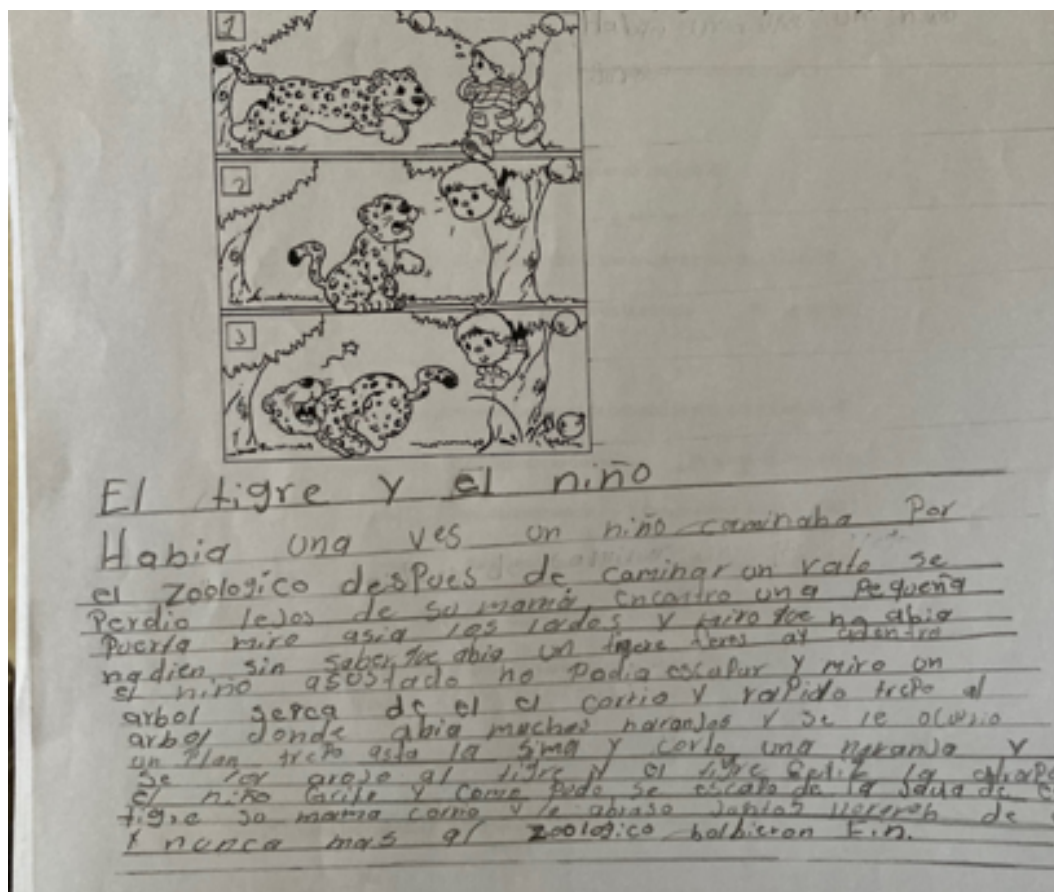 1
2
3
El tigre y el niño
Habia una ves un niño caminaba Por
el zoologico desPues de caminar un rato se
Perdio lejos de su mamá, encontro una Pequeña
Puerta miro asia los lados y miro que no abia
nadien, sin saber que abia un tigere feres ay adentro
el niño asustado no Podia escapar y miro un
arbol serca de el el corrio y raPido trePo al
arbol donde abia muchas naranjas y se le ocurrio
un Plan trePo asta la sima y corto una naranja y
se la arojo al tigre y el tigre
el niño Grito y como Pudo se escaPo de la Jaula de
tigre su mama corrio y le abraso Juntos lloraron de
y nunca mas al zoologico bolbieron Fin.